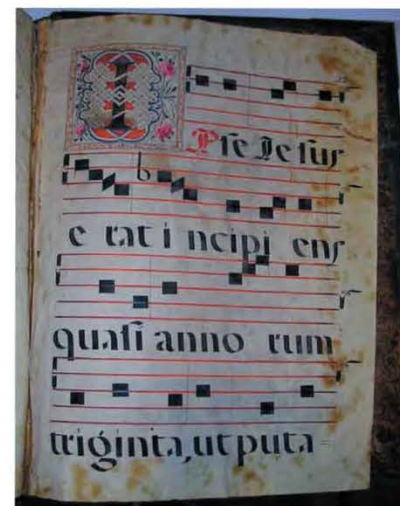 IPse Jesus
e rat i ncipi ens
quasi anno rum
triginta, ut puta